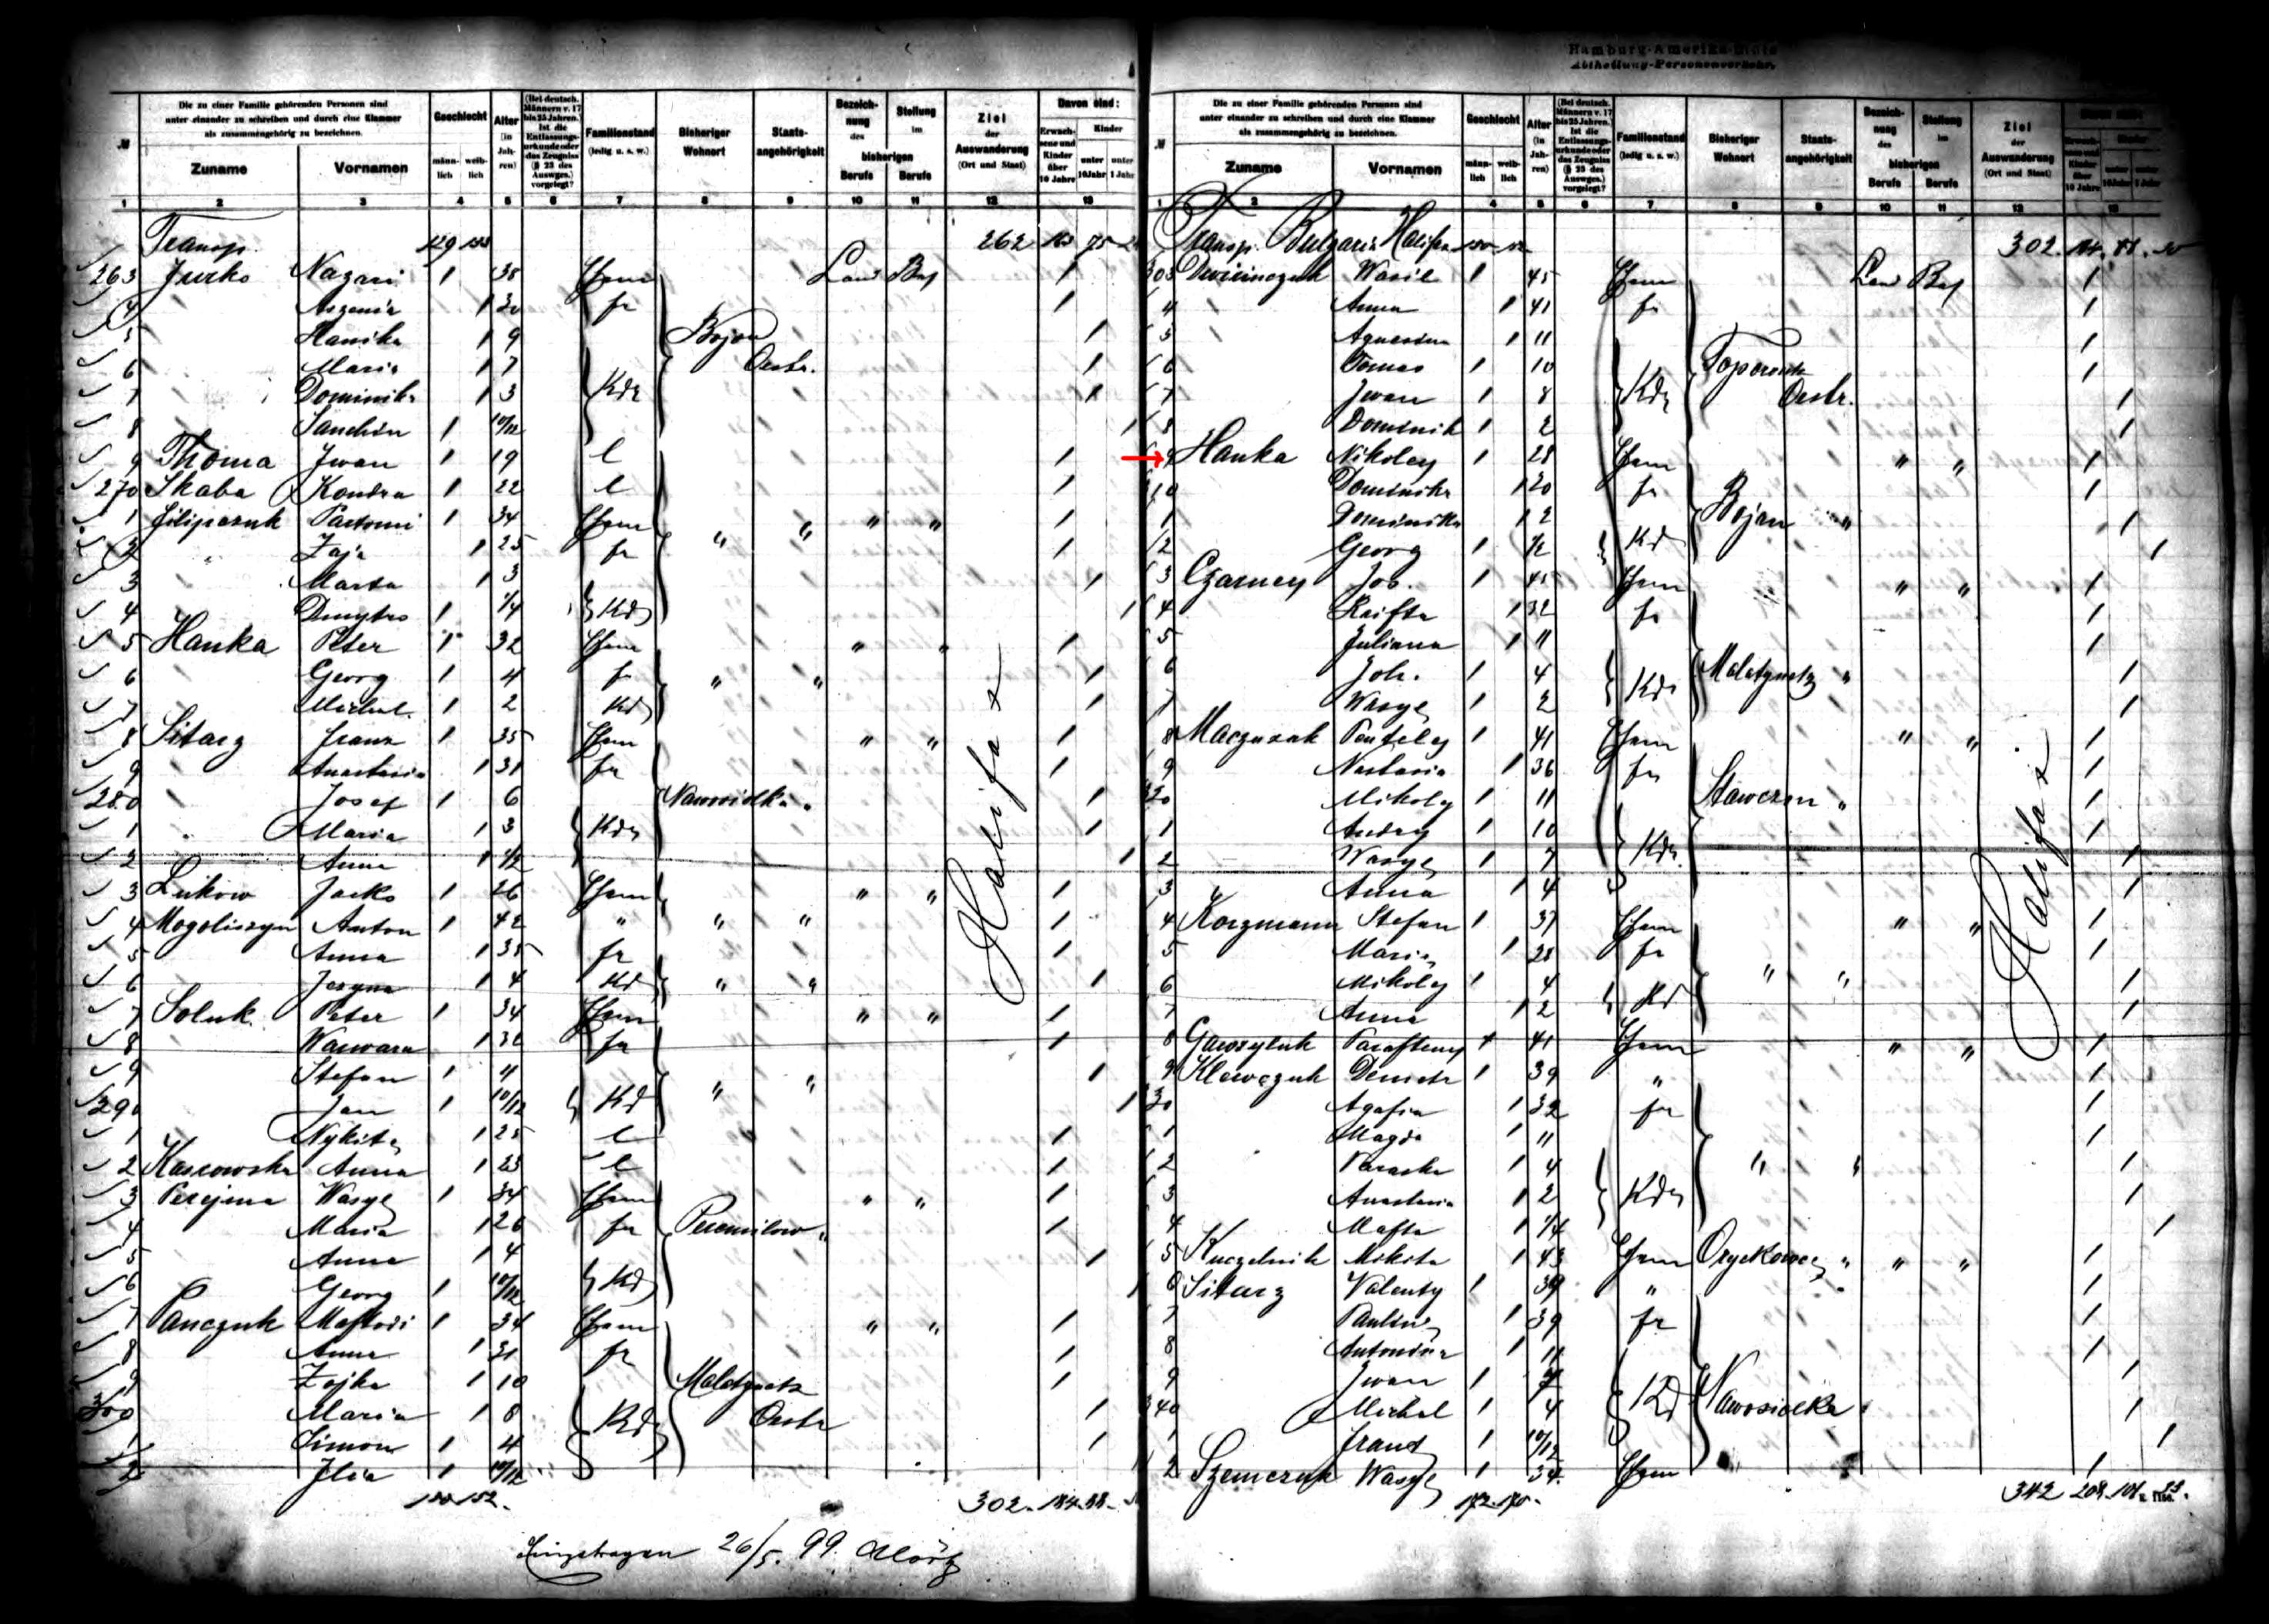 Hamburg-Amerika-Linie
Abtheilung-Personenverkehr.
№
Die zu einer Familie gehörenden Personen sind
unter einander zu schreiben und durch eine Klammer
als zusammengehörig zu bezeichnen.
Zuname Vornamen
Geschlecht
männ-lich weib-lich
Alter (in Jah-ren)
(Bei deutsch. Männern v. 17 bis 25 Jahren. Ist die Entlassungs-urkunde oder das Zeugniss (§ 23 des Auswges.) vorgelegt?
Familienstand (ledig u. s. w.)
Bisheriger Wohnort
Staats-angehörigkeit
Bezeich-nung des Stellung im
bisherigen
Berufe Berufe
Ziel der Auswanderung (Ort und Staat)
Davon sind:
Erwach-sene und Kinder über 10 Jahre
Kinder
unter 10 Jahr unter 1 Jahr
1 2 3 4 5 6 7 8 9 10 11 12 13
Transp. 129 133 262
263 Jurko Nazari 1 38 Ehem Land Bes 1
4 Axgenia 1 30 fr 1
5 Hanika 1 9 Bojan 1
6 Maria 1 7 Oestr. 1
7 Dominika 1 3 Kdr 1
8 1 10/12 1
9 Thoma Jwan 1 19 l 1
270 Skaba Kondra 1 22 l 1
1 Filipczuk 1 34 Ehem " " " " 1
2 Zoja 1 25 fr 1
3 Marta 1 3 1
4 Dmytro 1 1/4 Kdr 1
5 Hanka Peter 1 32 Ehem " " 1
6 Georg 1 4 fr " " 1
7 Michal. 1 2 Kdr 1
8 Sitarz Franz 1 35 Ehem " " 1
9 Anastasia 1 31 fr 1
280 Josef 1 6 Nawosidlka " 1
1 Maria 1 3 Kdr 1
2 Anna 1 1/2 1
3 Lukow Jacko 1 26 Ehem " " 1
4 Mogoliszyn Anton 1 42 " " " 1
5 Anna 1 35 fr 1
6 1 4 Kd " " 1
7 Soluk Peter 1 34 Ehem " " 1
8 Warwara 1 32 fr 1
9 Stefan 1 4 " " 1
290 Jan 1 10/12 Kd 1
1 Nykita 1 25 l 1
2 Kascowska Anna 1 23 l 1
3 Perejma Wasyl 1 34 Ehem " " 1
4 Maria 1 26 fr Peremilow " 1
5 Anna 1 4 1
6 Georg 1 10/12 Kd 1
7 Panczuk 1 34 Ehem " " 1
8 Anna 1 31 fr 1
9 Zojka 1 10 Malatynetz 1
300 Maria 1 8 Kdr Oestr 1
1 Simon 1 4 1
2 Jlia 1 10/12
Halifax
150 152. 302. 184. 88.
Eingetragen 26/5. 99.
№
Die zu einer Familie gehörenden Personen sind
unter einander zu schreiben und durch eine Klammer
als zusammengehörig zu bezeichnen.
Zuname Vornamen
Geschlecht
männ-lich weib-lich
Alter (in Jah-ren)
(Bei deutsch. Männern v. 17 bis 25 Jahren. Ist die Entlassungs-urkunde oder das Zeugniss (§ 23 des Auswges.) vorgelegt?
Familienstand (ledig u. s. w.)
Bisheriger Wohnort
Staats-angehörigkeit
Bezeich-nung des Stellung im
bisherigen
Berufe Berufe
Ziel der Auswanderung (Ort und Staat)
1 2 3 4 5 6 7 8 9 10 11 12 13
Transp. Bulgaria Halifax 302.
303 Wasil 1 45 Ehem Land Bes 1
4 Anna 1 41 fr 1
5 1 11 1
6 Tomas 1 10 Toporoutz 1
7 Jwan 1 8 Kdr Oestr. 1
8 Dominik 1 2 1
9 Hanka Nikoley 1 28 Ehem " " 1
310 Dominika 1 20 fr 1
1 Dominika 1 2 Bojan " 1
2 Georg 1 1/2 Kd 1
3 Czarney Job. 1 45 Ehem " " 1
4 Raifta 1 32 fr 1
5 Juliana 1 11 1
6 Joh. 1 4 Kdr Malatynetz " 1
7 Wasyl 1 2 1
8 Maczuzak 1 41 Ehem " " 1
9 Nastasia 1 36 fr 1
320 Mikoly 1 11 Stawczan " 1
1 Andry 1 10 1
2 Wasyl 1 7 Kdr. 1
3 Anna 1 4 1
4 Korzmann Stefan 1 37 Ehem " " 1
5 Maria 1 28 fr 1
6 Mikoly 1 4 " " 1
7 Anna 1 2 Kd 1
8 Gawryluk 1 41 Ehem " " 1
9 Klewczuk Demetr 1 39 " 1
330 Agafia 1 32 fr 1
1 Magda 1 11 1
2 Paraska 1 4 " " 1
3 Anastasia 1 2 Kdr 1
4 Mafta 1 1/4 1
5 Kuczelnik Mikita 1 43 Ehem " " " 1
6 Sitarz Valenty 1 39 " 1
7 Paulina 1 39 fr 1
8 Antonina 1 11 1
9 Jwan 1 7 1
340 Michal 1 4 Kd Nawosiolka " 1
1 Franz 1 10/12 1
2 Szemczuk Wasyl 1 34 Ehem 1
Halifax
172. 170. 342 208.